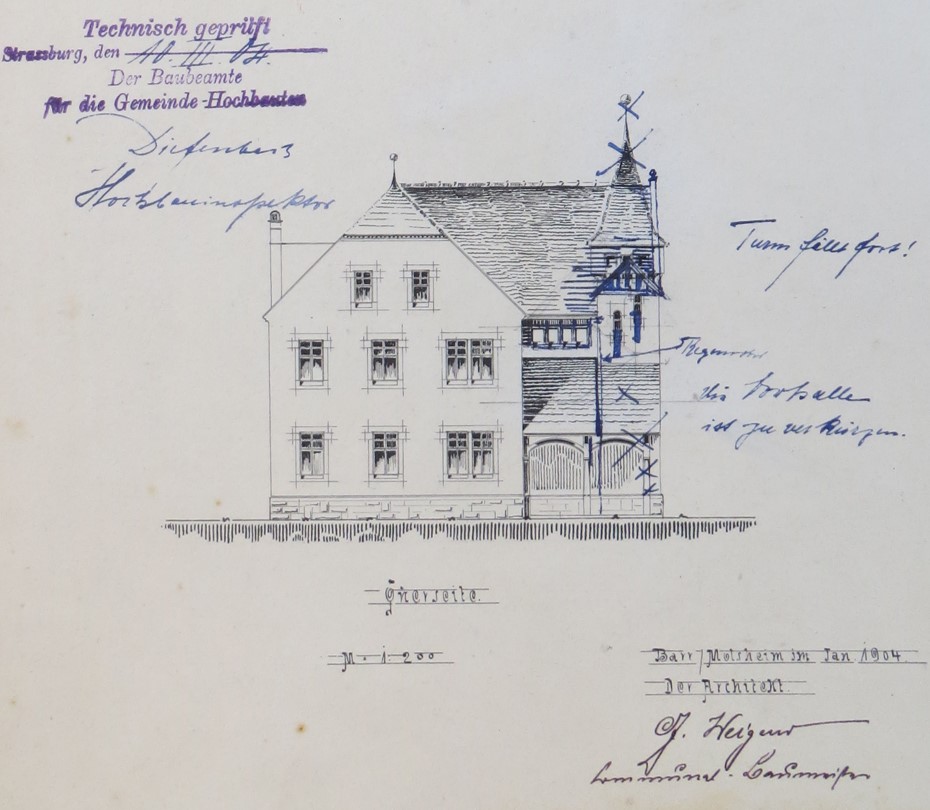 Technisch geprüft
Strassburg, den 10. III. 04.
Der Baubeamte
für die Gemeinde-Hochbauten
Hochbauinspektor
Turm fällt fort!
Regenrohr
die Vorhalle
ist zu verkürzen.
Querseite.
M. 1 200
Barr/Molsheim im Jan. 1904.
Der Architekt.
Communal-Baumeister